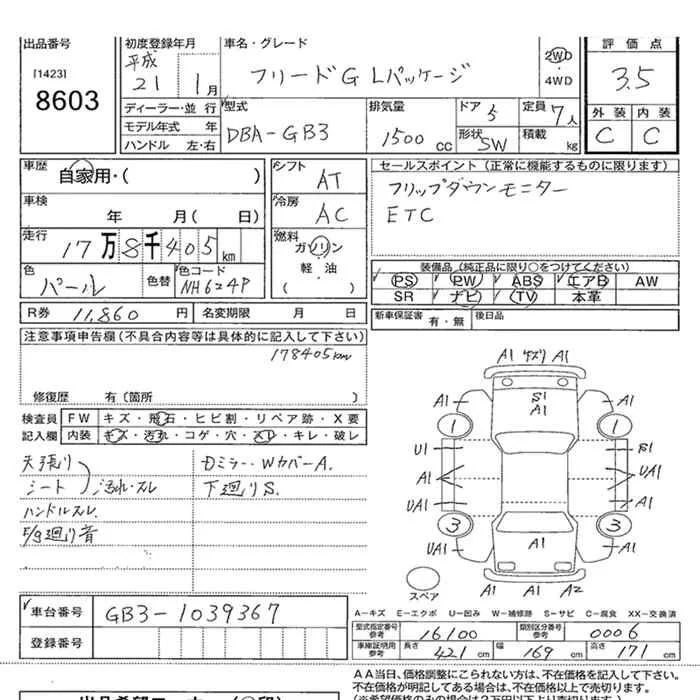 出品番号
[1423]
8603
初度登録年月
平成
21 1月
ディーラー・並行
モデル年式 年
ハンドル 左・右
車名・グレード
フリードG Lパッケージ
2WD
・
4WD
型式
DBA-GB3
排気量
1500cc
ドア 5
形状 SW
定員 7人
積載 kg
評価点
3.5
外装 内装
C C
車歴
自家用・( )
車検
年 月( 日)
走行
17万8千405km
色
パール
色替
色コード
NH624P
シフト
AT
冷房
AC
燃料
ガソリン
軽・油
( )
セールスポイント(正常に機能するものに限ります)
フリップダウンモニター
ETC
装備品(純正品に限り○をつけてください)
PS PW ABS エアB AW
SR ナビ TV 本革
R券 11,860円
名変期限 月 日
新車保証書 有・無
後日品
注意事項申告欄(不具合内容等は具体的に記入して下さい)
178405km
修復歴 有(箇所 )
検査員
記入欄
FW キズ・飛石・ヒビ割・リペア跡・X要
内装 キズ・汚れ・コゲ・穴・スレ・キレ・破レ
天張り
シート 汚れ・スレ
ハンドルスレ
E/g廻り音
Dミラー・WカバーA.
下廻りS.
A1 A1
A1 S1 A1 A1
1 1
U1 S1
A1 UA1
UA1 A1
3 3
UA1 A1 A1
A1 A1 A2
スペア
車台番号 GB3-1039367
登録番号
A-キズ E-エクボ U-凹み W-補修跡 S-サビ C-腐食 XX-交換済
型式指定番号
参考
16100
類別区分番号
参考
0006
車庫証明用
参考
長さ 421cm
幅 169cm
高さ 171cm
AA当日、価格調整にこられない方は、不在価格を記入して下さい。
不在価格が明記してある場合は、不在価格以上で売切ります。